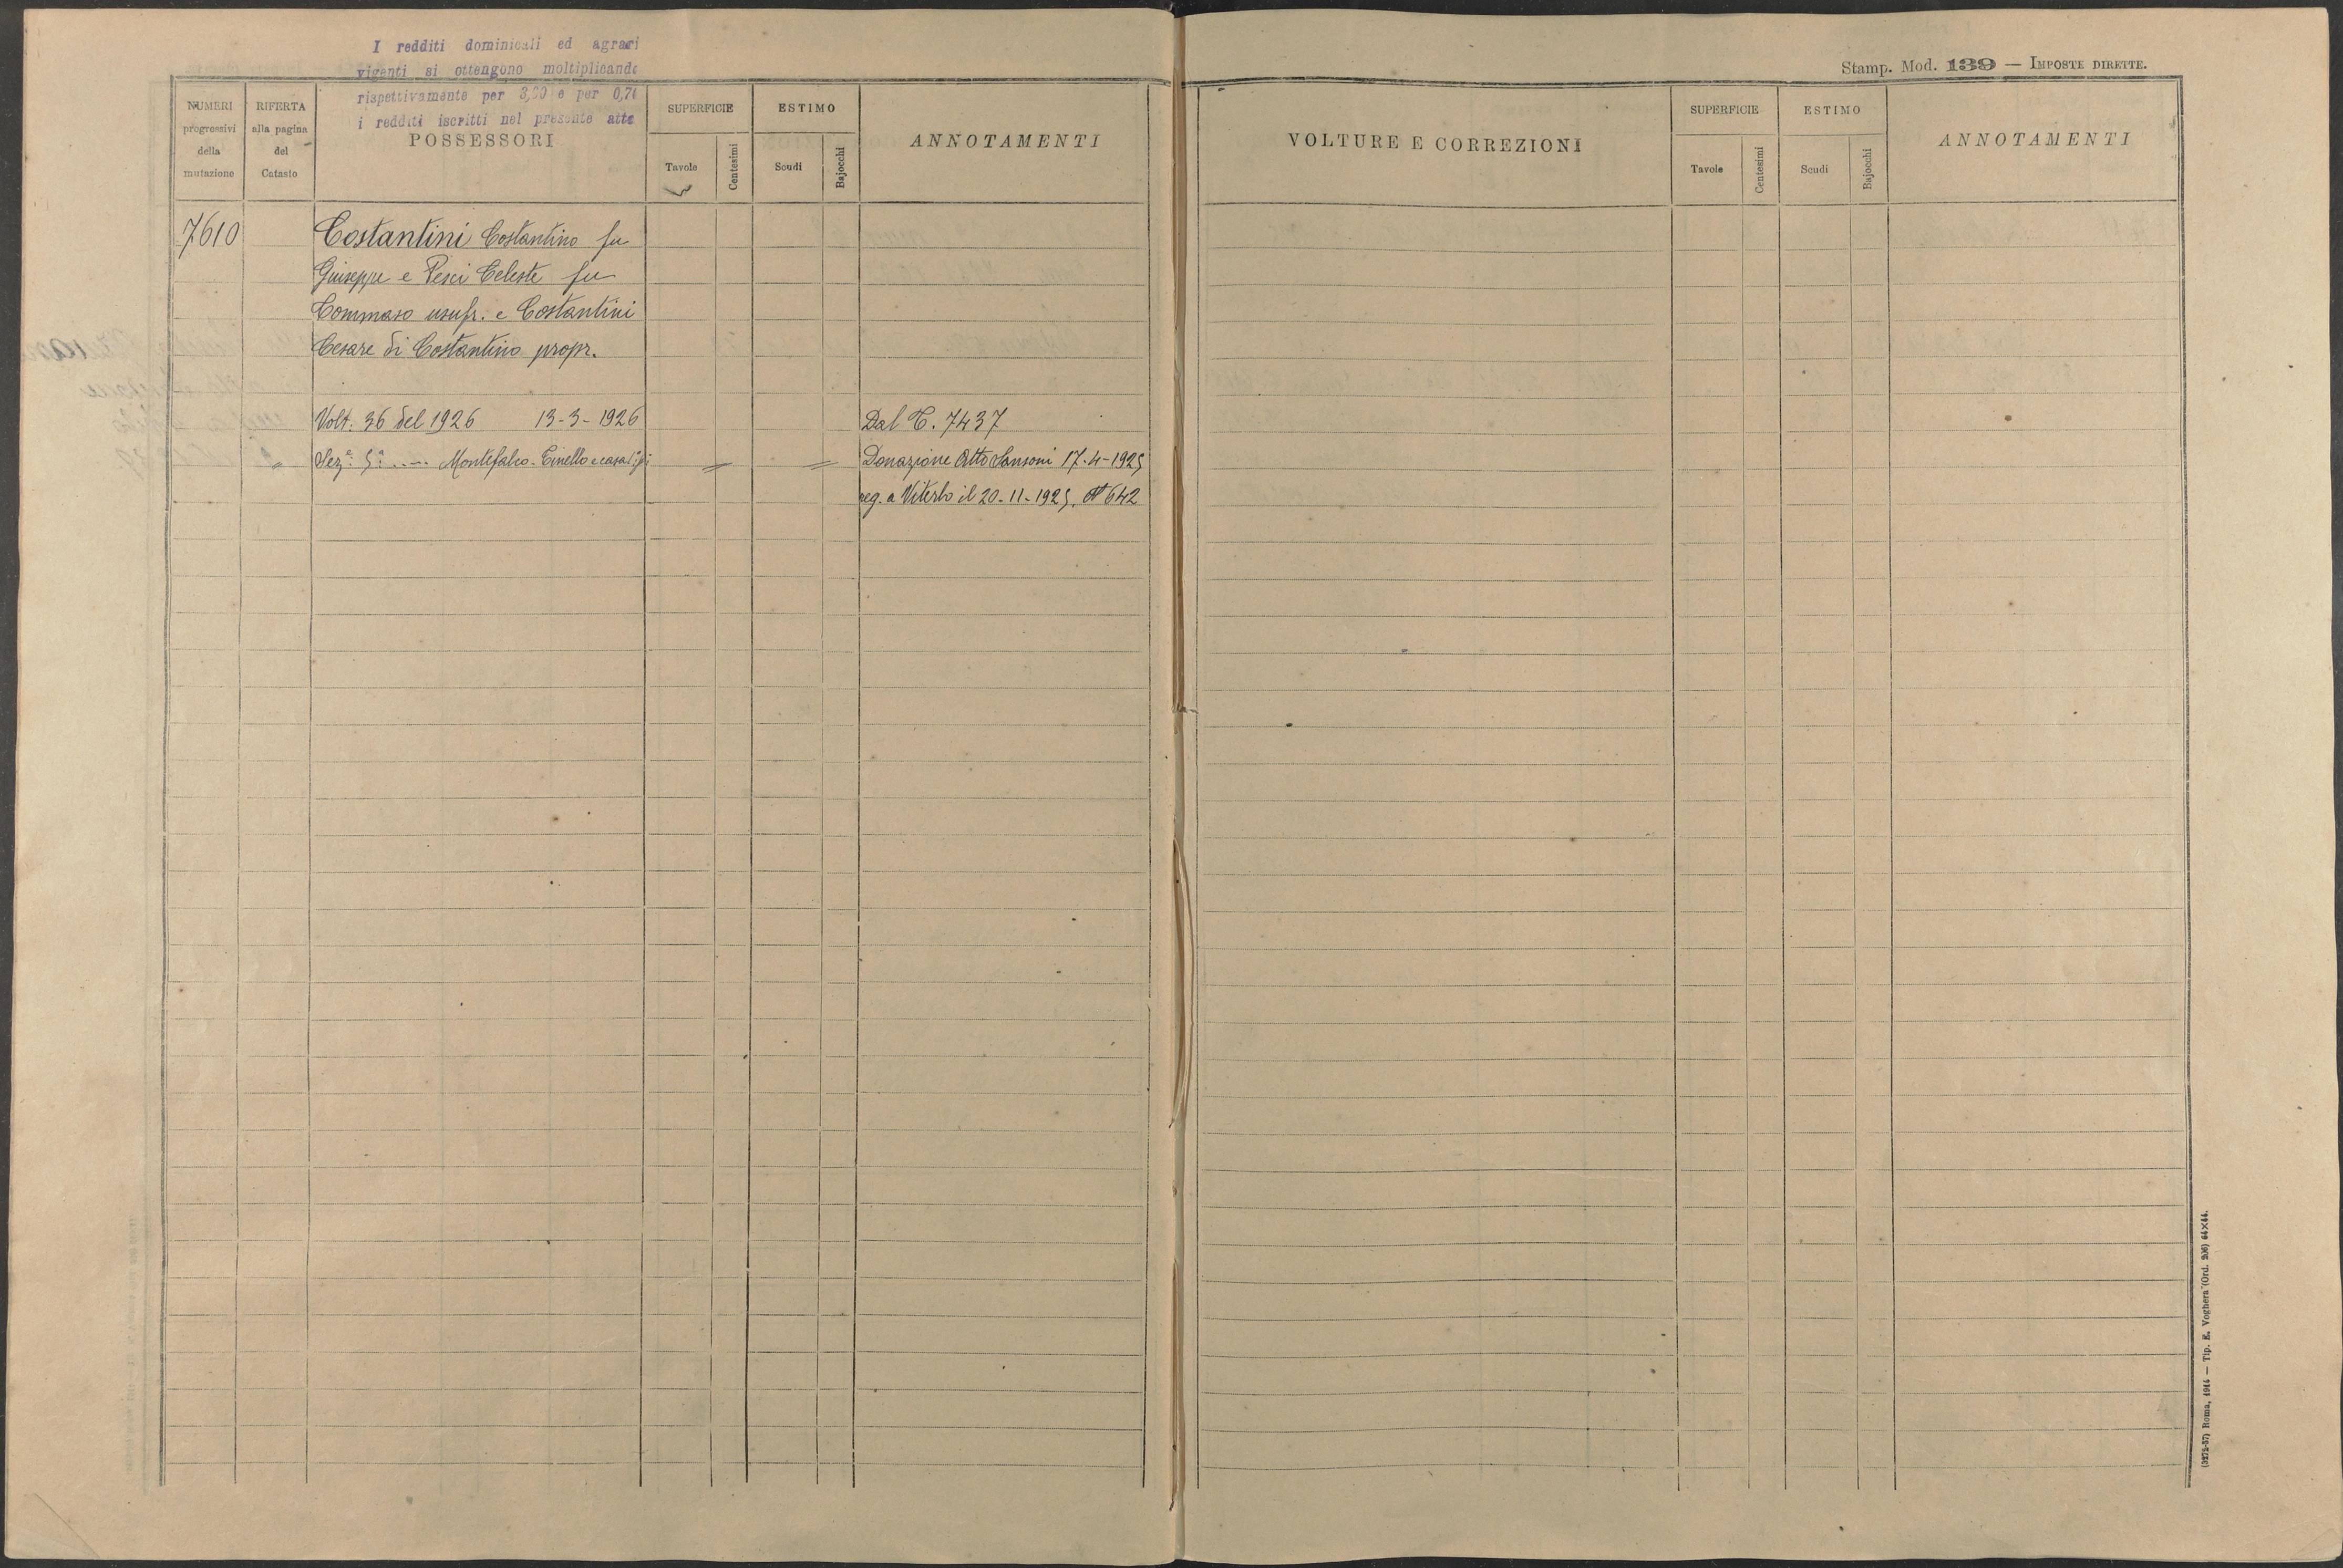 I redditi dominicali ed agrari
vigenti si ottengono moltiplicando
rispettivamente per e per
i redditi iscritti nel presente atto
NUMERI progressivi della mutazione
RIFERTA alla pagina del Catasto
POSSESSORI
SUPERFICIE
Tavole
Centesimi
ESTIMO
Scudi
Bajocchi
ANNOTAMENTI
7610
Costantini Costantino fu
Giuseppe e Pesci Celeste fu
Tommaso usufr. e Costantini
Cesare di Costantino propr.
Volt. 36 del 1926 13-3-1926
Dal C. 7437
" Sez.ª 5ª ..... Montefalco. = =
Donazione Atto Sansoni 17-4-1925
reg. a Viterbo il 20-11-1925. Nº 642
Stamp. Mod. 139 — IMPOSTE DIRETTE.
VOLTURE E CORREZIONI
SUPERFICIE
Tavole
Centesimi
ESTIMO
Scudi
Bajocchi
ANNOTAMENTI
Roma, 1914 — Tip. E. Voghera (Ord. 206) 64×44.